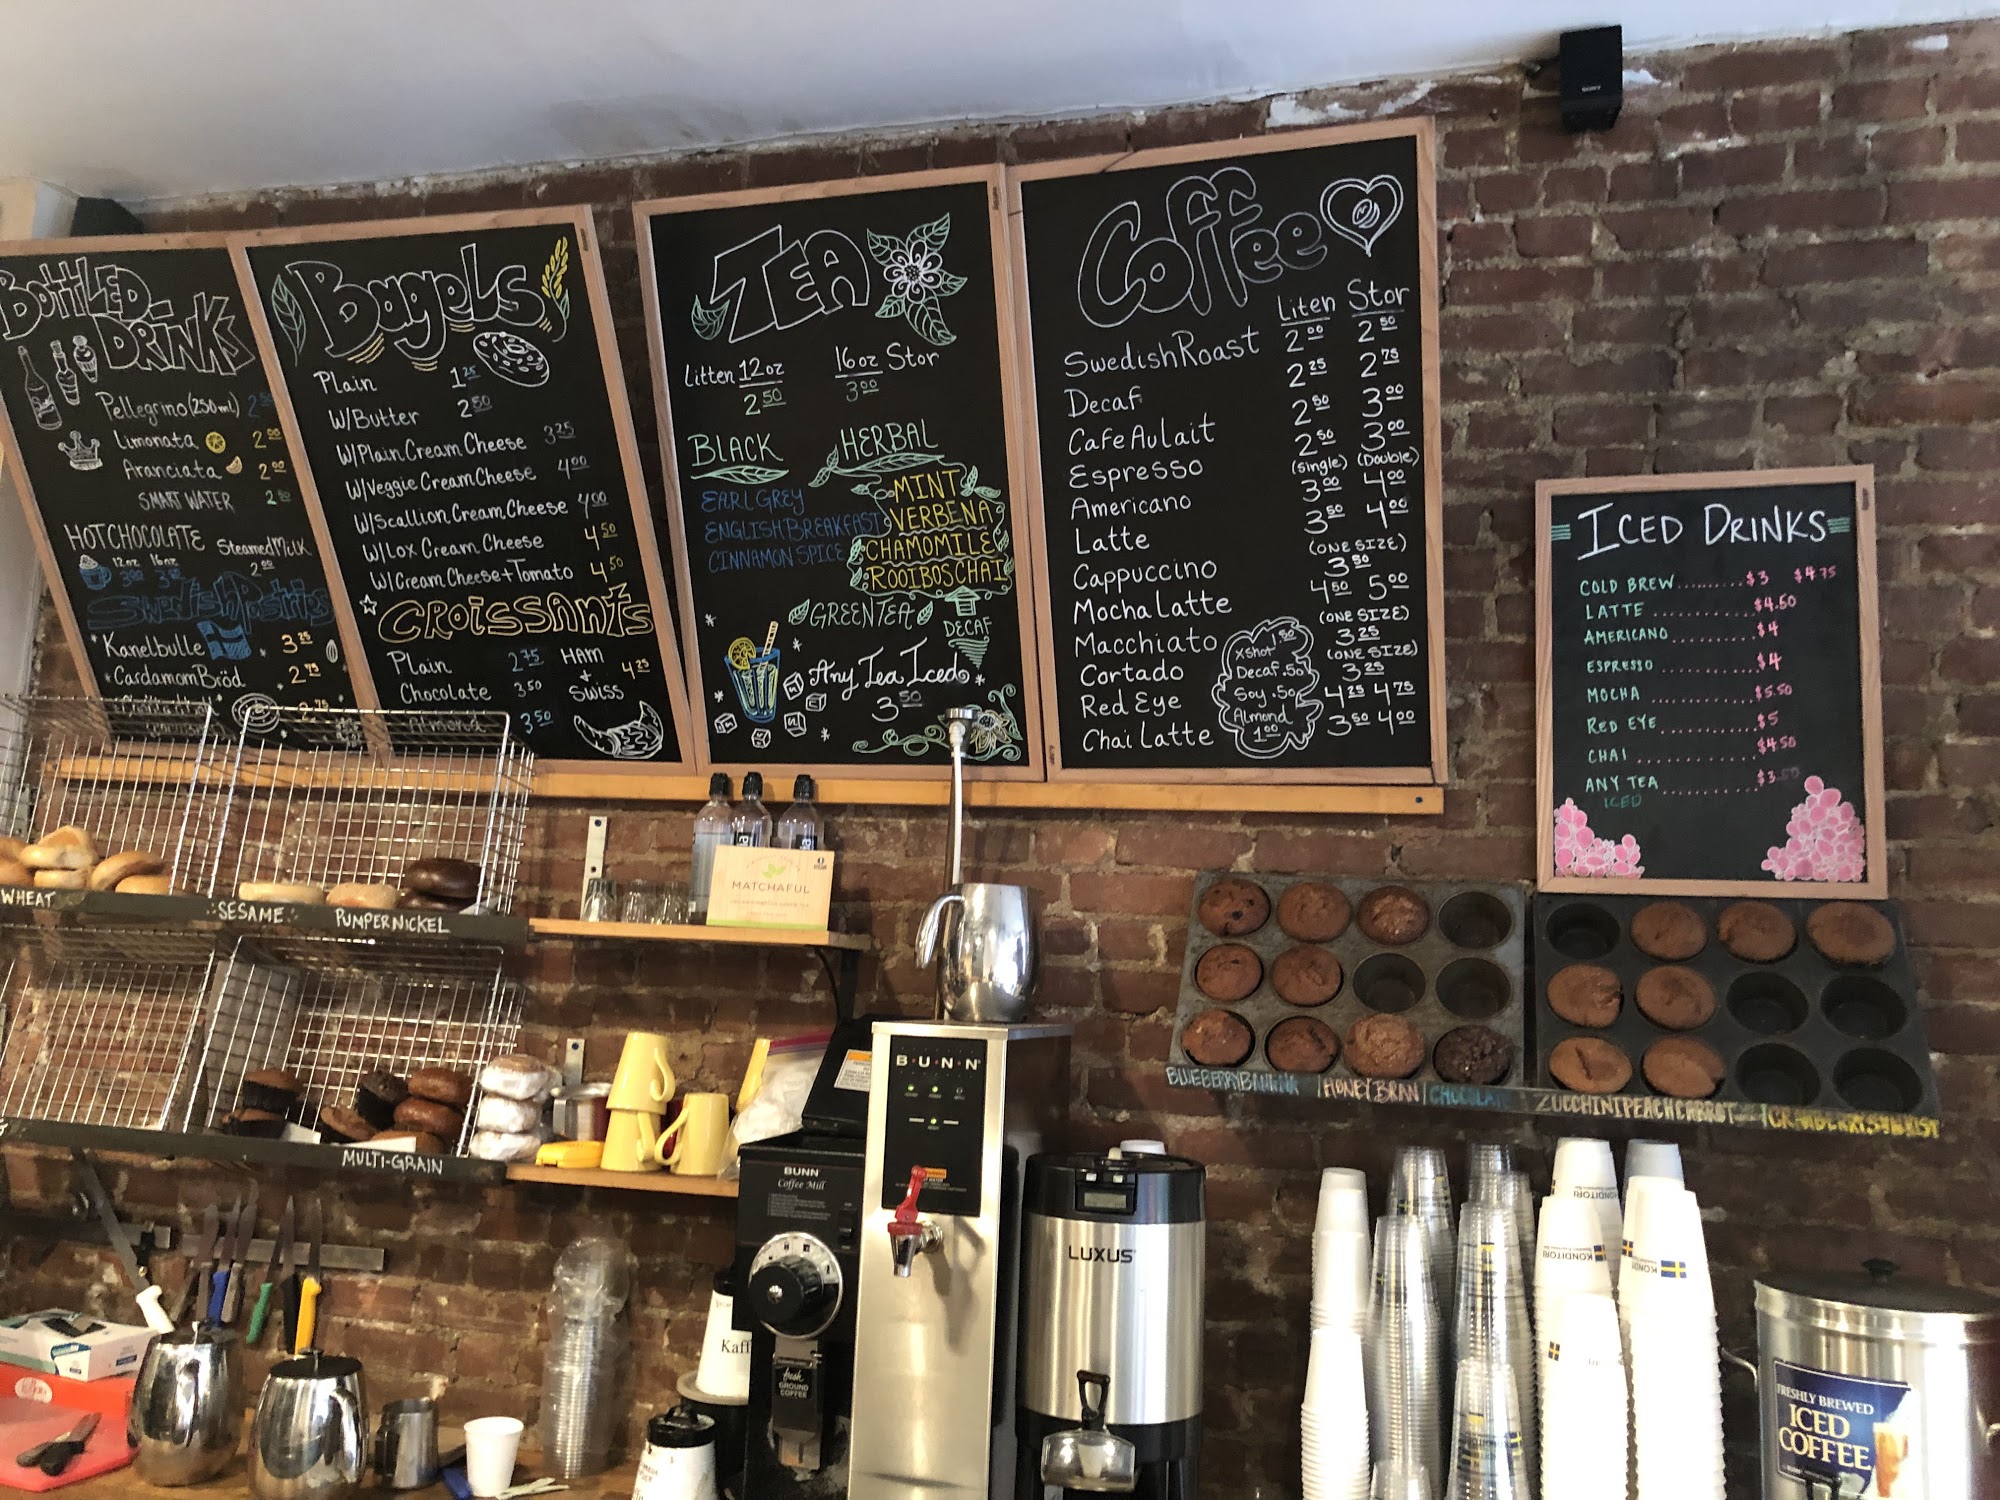 BOTTLED
DRINKS
Pellegrino (250ml) 2.50
Limonata 2.00
Aranciata 2.00
SMART WATER 2.50
HOT CHOCOLATE
12oz 16oz
Steamed Milk
2.00
Swedish Pastries
* Kanelbulle 3.25
* Cardamom Bröd 2.75
2.75
Bagels
Plain 1.25
W/Butter 2.50
W/Plain Cream Cheese 3.25
W/Veggie Cream Cheese 4.00
W/Scallion Cream Cheese 4.00
W/Lox Cream Cheese 4.50
W/Cream Cheese + Tomato 4.50
CROISSANTS
Plain 2.75
Chocolate 3.50
Almond 3.50
HAM
+
Swiss
4.25
TEA
Litten 12oz 16oz Stor
2.50 3.00
BLACK
EARL GREY
ENGLISH BREAKFAST
CINNAMON SPICE
HERBAL
MINT
VERBENA
CHAMOMILE
ROOIBOS CHAI
GREEN TEA
DECAF
Any Tea Iced
3.50
Coffee
Liten Stor
Swedish Roast 2.00 2.50
Decaf 2.25 2.75
Cafe Au Lait 2.50 3.00
Espresso 2.50 3.00
(single) (Double)
Americano 3.00 4.00
Latte 3.50 4.00
(ONE SIZE)
Cappuccino 3.50
Mocha Latte 4.50 5.00
(ONE SIZE)
Macchiato 3.25
(ONE SIZE)
Cortado 3.25
Red Eye 4.25 4.75
Chai Latte 3.50 4.00
xshot 1.50
Decaf .50
Soy .50
Almond
1.00
SONY
ICED DRINKS
COLD BREW......... $3 $4.75
LATTE ........... $4.50
AMERICANO ......... $4
ESPRESSO .......... $4
MOCHA ............ $5.50
RED EYE ........... $5
CHAI ............. $4.50
ANY TEA ......... $3.50
ICED
WHEAT
SESAME
PUMPERNICKEL
MULTI-GRAIN
MATCHAFUL
BLUEBERRY BANANA / HONEY BRAN / CHOCOLATE
ZUCCHINI PEACH CARROT
B·U·N·N
BUNN
Coffee Mill
fresh
GROUND
COFFEE
LUXUS
Kaff
KONDITORI
KONDITORI
FRESHLY BREWED
ICED
COFFEE